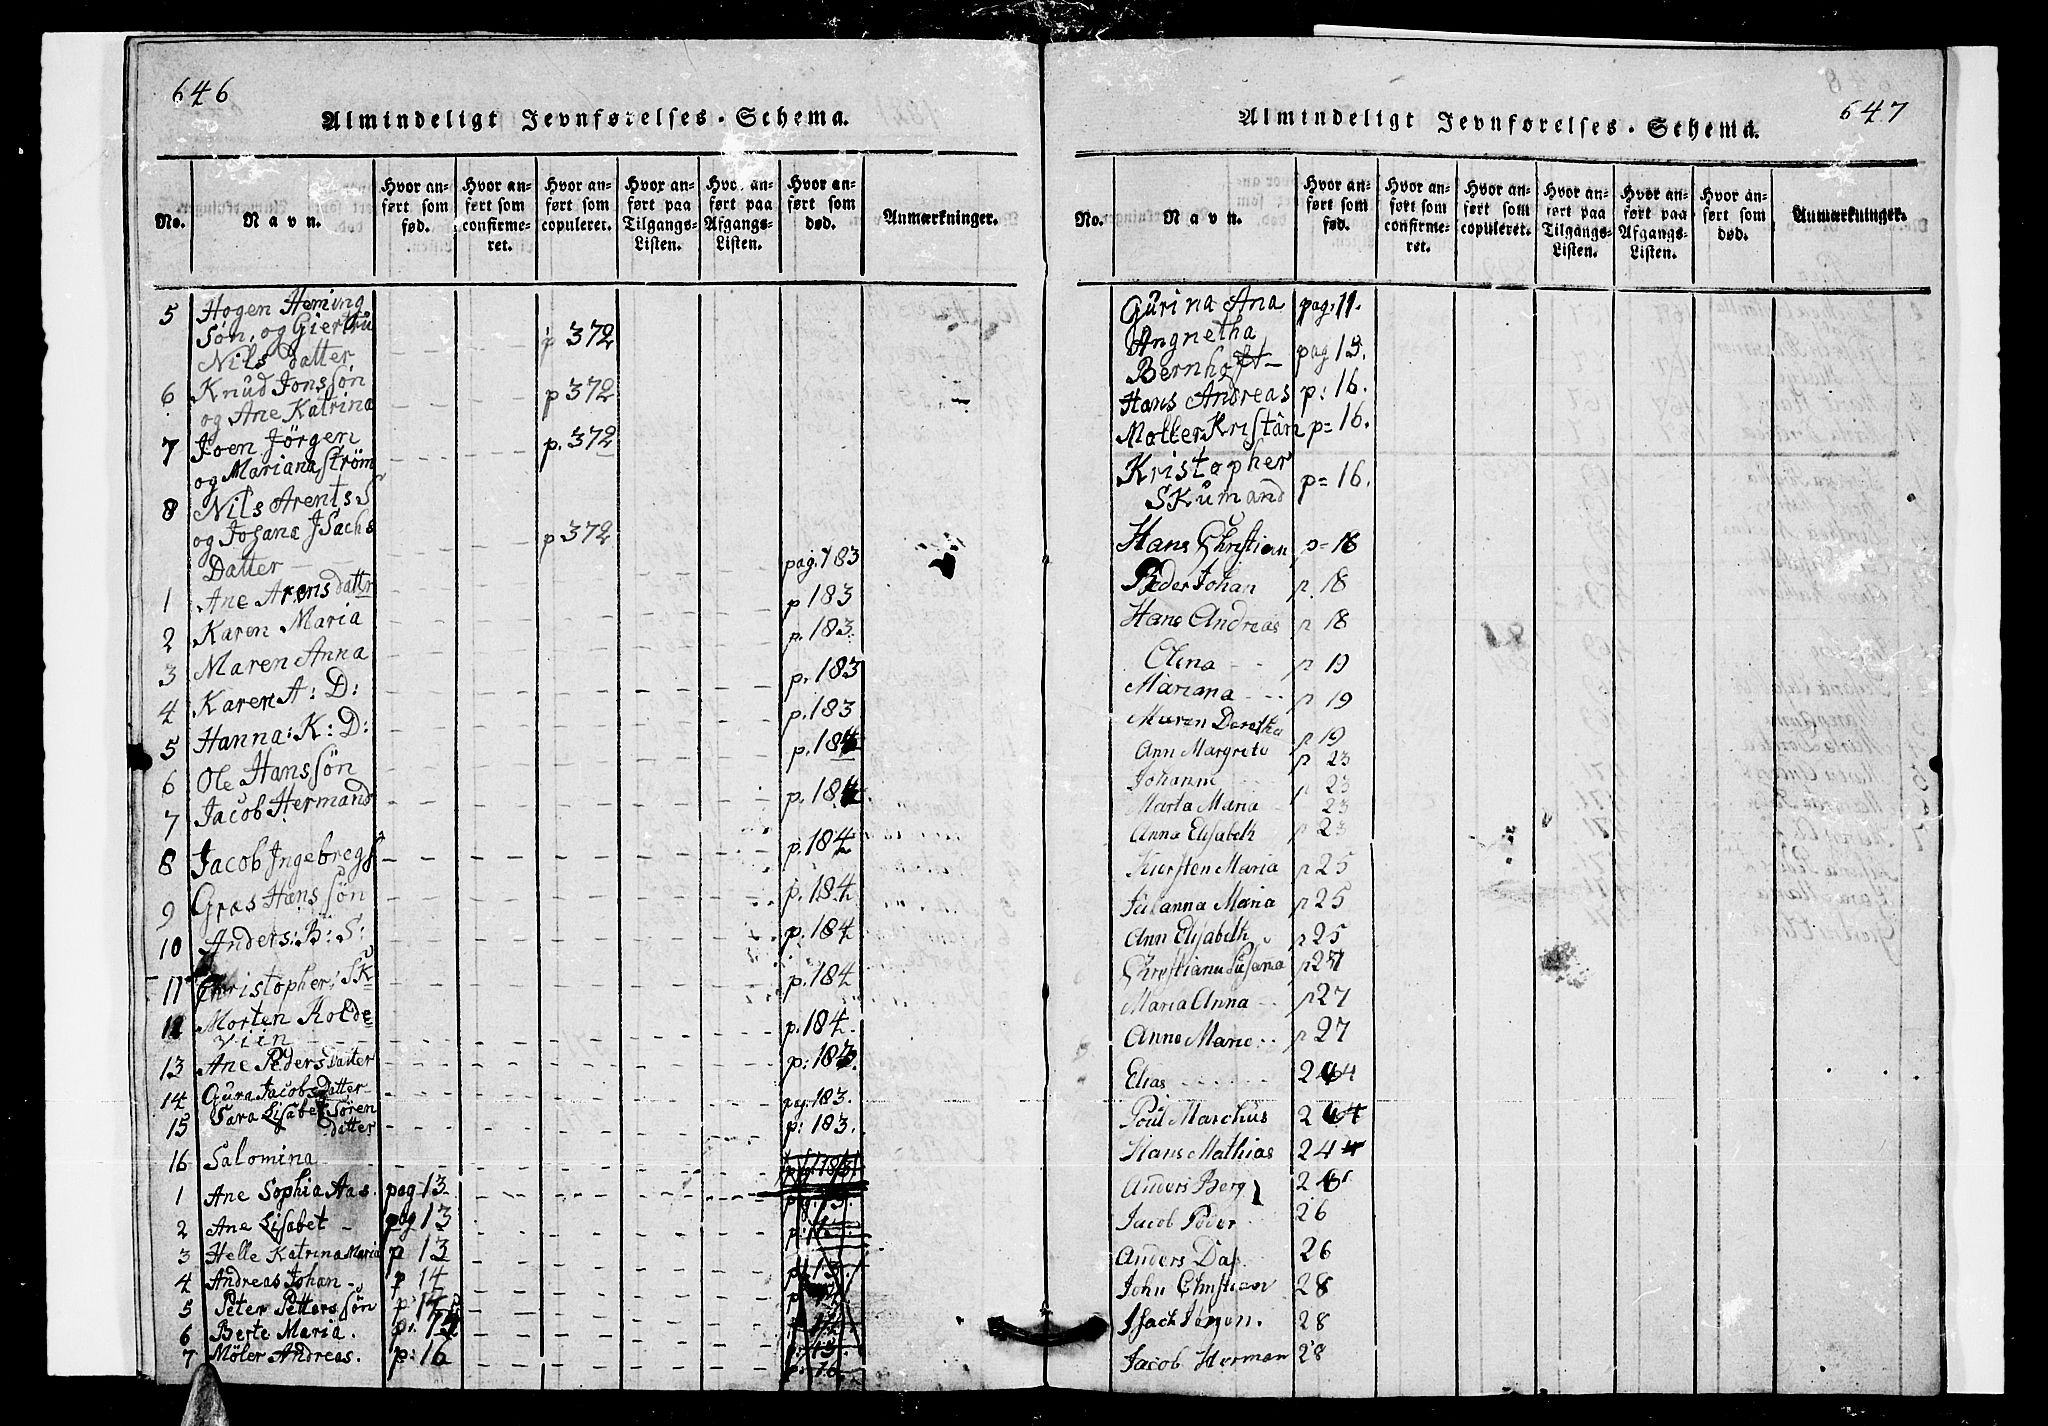 646
Almindeligt Jevnførelses-Schema.
No.
Navn.
Hvor anført som fød.
Hvor anført som confirmeret.
Hvor anført som copuleret.
Hvor anført paa Tilgangs-Listen.
Hvor anført paa Afgangs-Listen.
Hvor anført som død.
Anmærkninger.
5 Hogen Heming
Søn, og Giertru
Nils datter p 372
6 Knud Jonssøn
og Ane Katrina p 372
7 Joen Jörgen
og Mariana Ström p. 372
8 Nils Arents S
og Josana Jsachs p 372
Datter pag. 183
1 Ane Arensdattr p 183
2 Karen Maria p. 183
3 Maren Anna p. 183
4 Karen A: D: p. 183
5 Hanna: K: D: p. 184
6 Ole Hanssøn p. 184
7 Jacob Hermand
8 Jacob Ingebregs p. 184
9 Gras Hans søn p. 184
10 Anders: B: S: p. 184
11 Christopher: SK p. 184
12 Morten Holde p. 184
viin
13 Ane Peders Datter p: 183
14 Gura Jacobsdatter pag. 183
15 Sara Lisabet Sören p: 183.
datter
16 Salomina
1 Ane Sophia Aas. pag 13
2 Ane Lisabet pag 13
3 Helle Katrina Maria p 13
4 Andreas Johan p 14
5 Peter Petterssön p: 14
6 Berte Maria. p:
7 Möler Andreas. p: 16
647
Almindeligt Jevnførelses-Schema.
No.
Navn.
Hvor anført som fød.
Hvor anført som confirmeret.
Hvor anført som copuleret.
Hvor anført paa Tilgangs-Listen.
Hvor anført paa Afgangs-Listen.
Hvor anført som død.
Anmærkninger.
Gurina Ana pag. 11.
Angnetha
Bernhoft pag 15.
Hans Andreas p: 16.
Motter Kristan p= 16.
Kristopher
SKumand p= 16.
Hans Christian p= 18
Peder Johan p. 18
Hans Andreas p 18
Olina p 19
Mariana p 19
Maren Dorethea p 19
Ann Margrete p 23
Johanne p 23
Marta Maria 23
Anna Elisabeth p 23
Kiersten Maria p 25
Julanna Maria p 25
Ann Elisabeth p 25
Christiana Susana p 27
Maria Anna p 27
Anne Marie p 27
Elias 24
Poul Marchus 24
Hans Mathias 24
Anders Berg
Jacob Peder 26
Anders Das. 26
John Christian 28
Isach Jørgen. 28
Jacob Herman 28